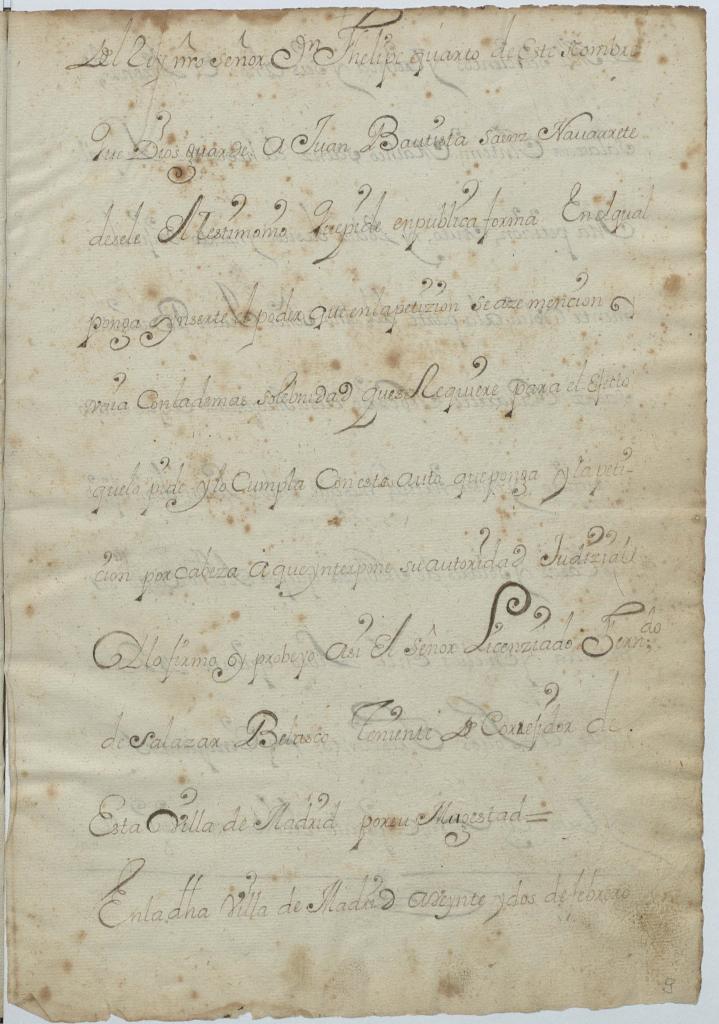 del Rey nro señor Dn Fhelipe quarto de este nombre
que Dios guarde, a Juan Bautista saenz Navarrete
desele el testimonio que pide en publica forma En el qual
ponga e ynserte el poder que en la petizion se aze mencion
vaia Con la demas solebnidad que se Requiere para el Efetto
que lo pide y lo Cumpla Con este auto que ponga y la peti-
cion por cabeza a que ynterpone su autoridad Judizial
y lo firmo y probeyo assi El señor Licenziado Ferndo
de salazar Belasco Teniente de Correxidor de
Esta Villa de Madrid por su Magestad =
En la dha Villa de Madrid a veynte y dos de febrero